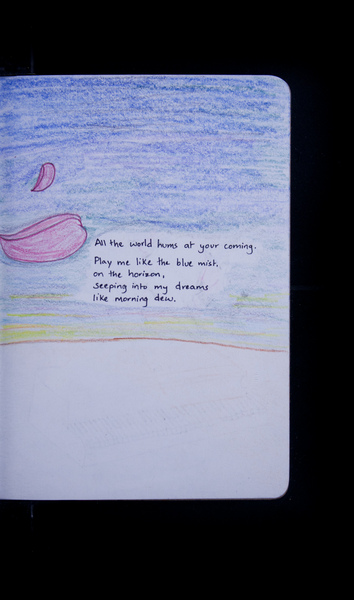 All the world hums at your coming.
Play me like the blue mist,
on the horizon,
seeping into my dreams
like morning dew.